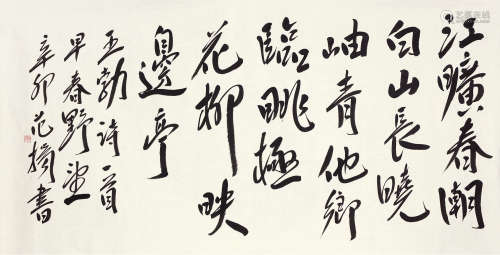 江曠春潮
白山長曉
岫青他鄉
臨眺極
花柳映
邊亭
王勃詩一首
早春野望
辛卯范揚書